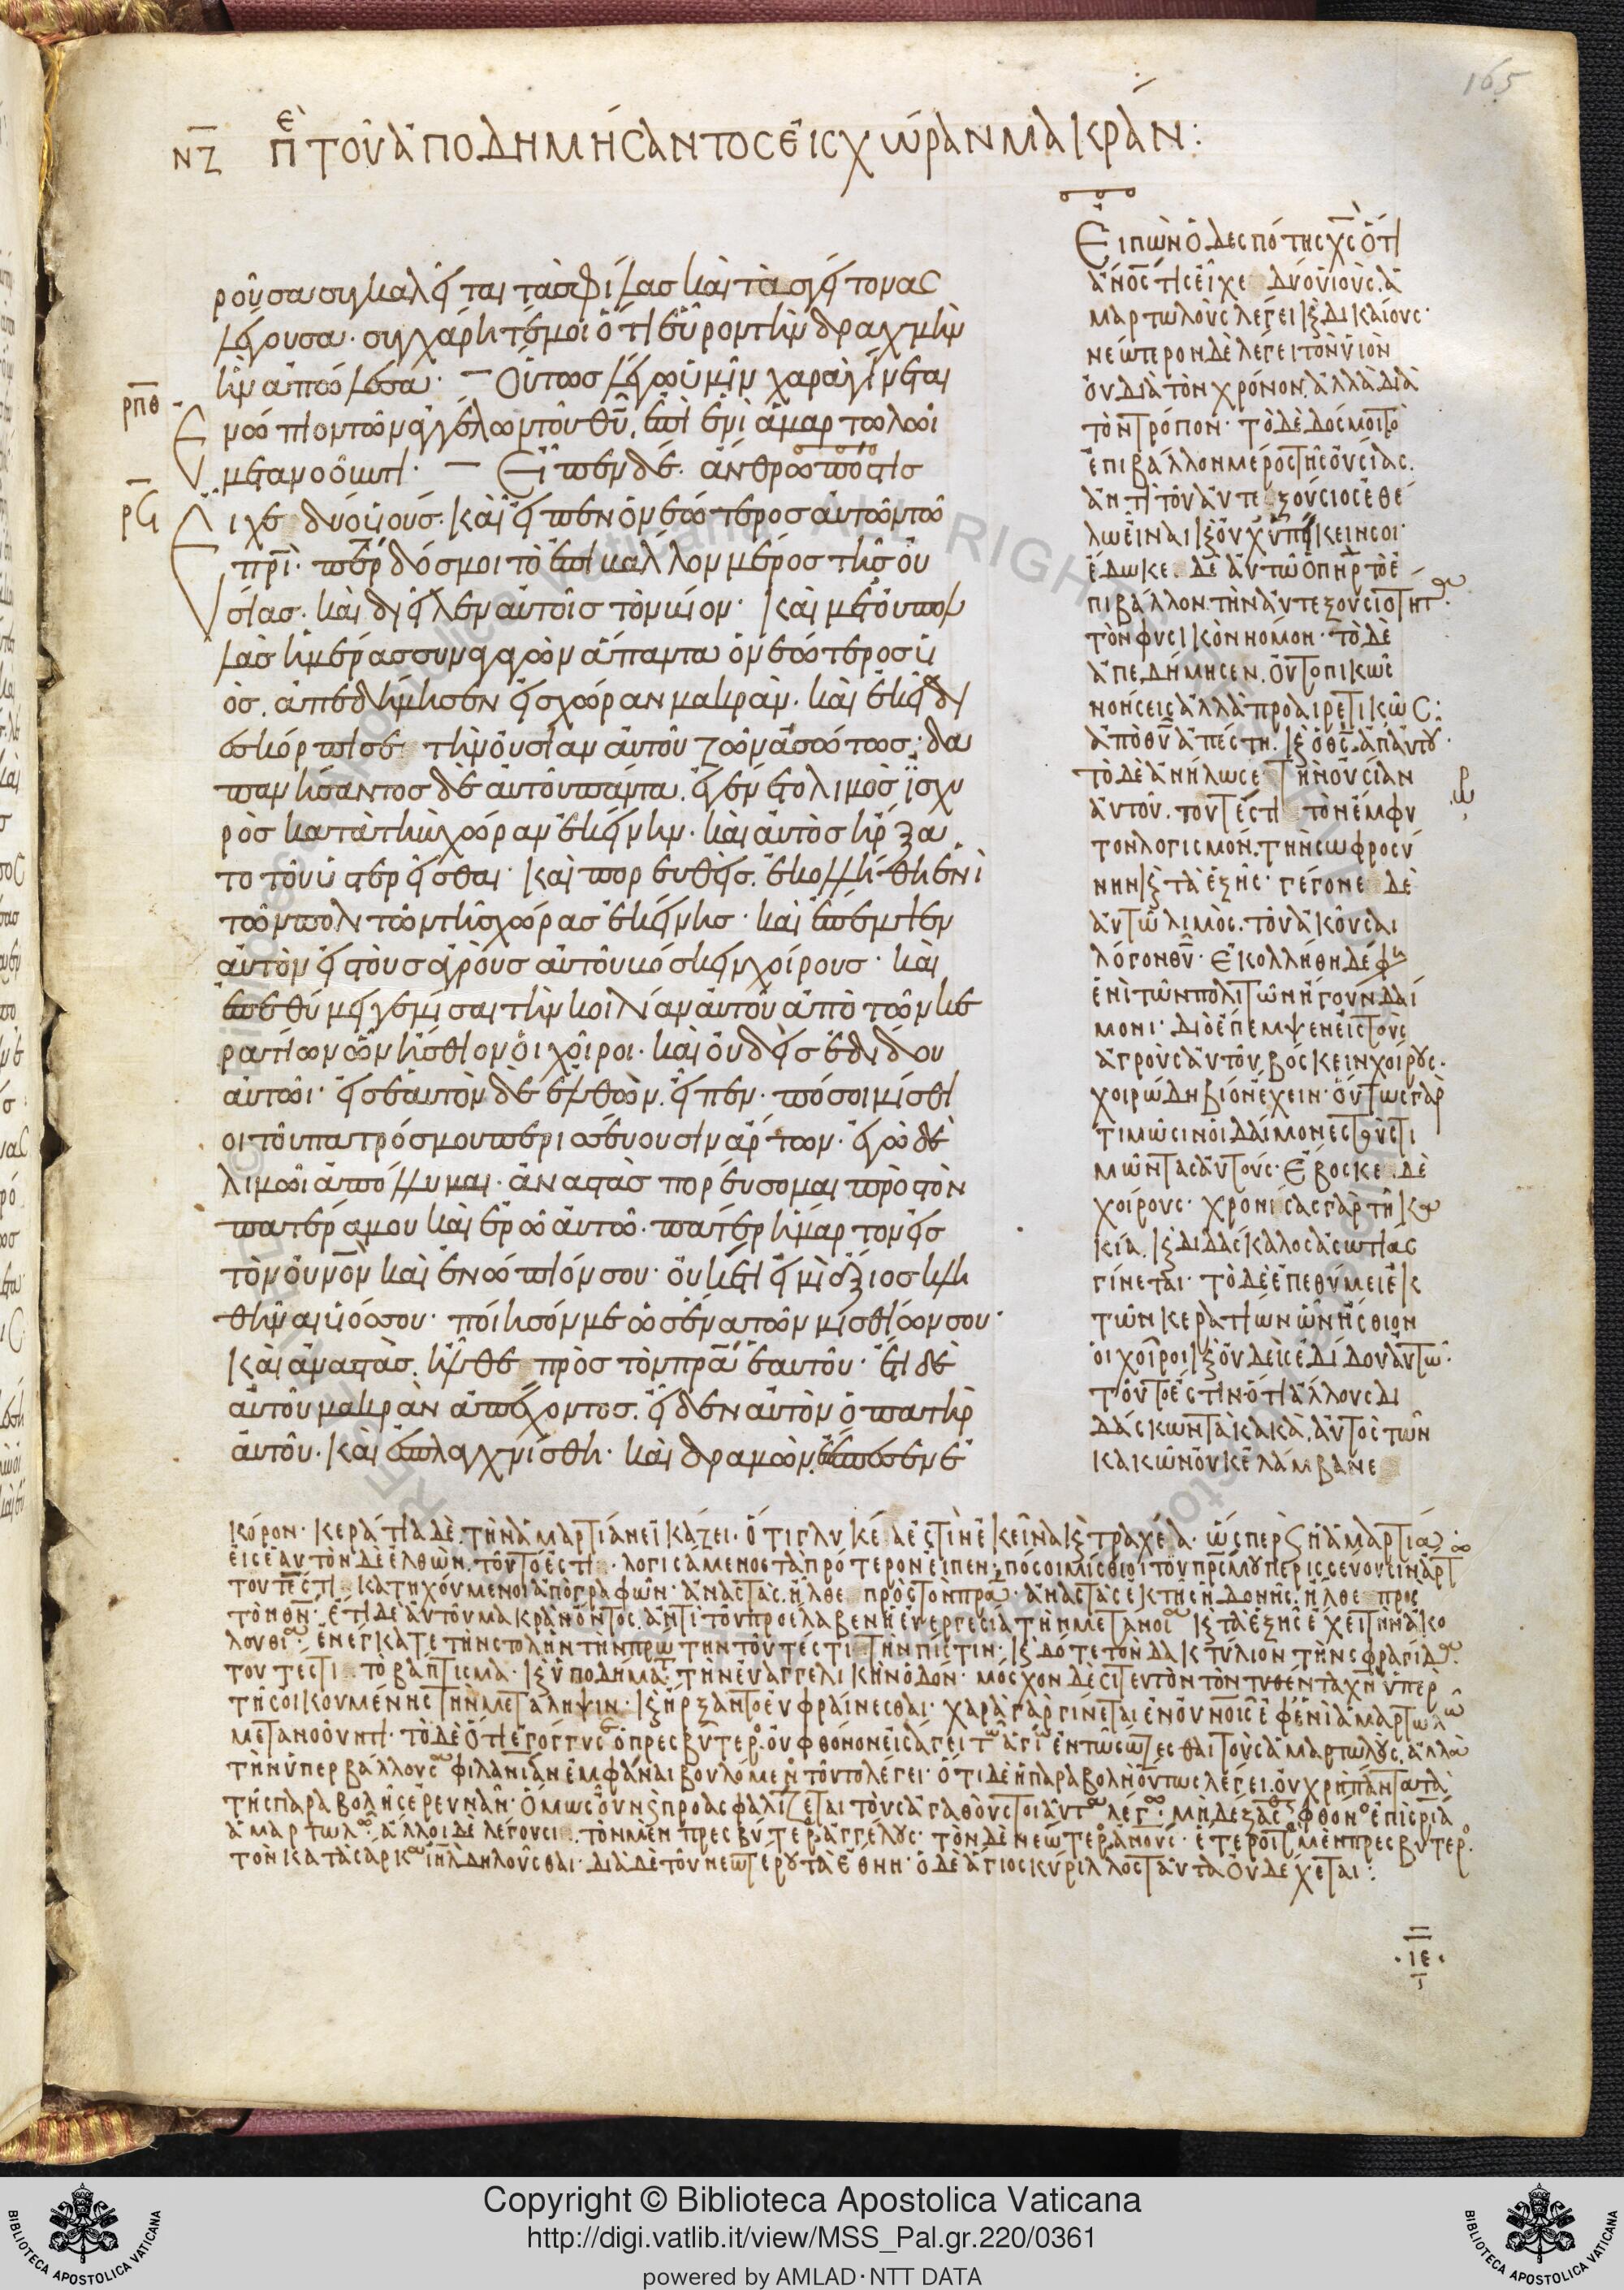 165
ΝΖ ΠΕ ΤΟῦ ἀΠΟΔΗΜΉCΑΝΤΟC ΕἰC ΧώΡΑΝ ΜΑΚΡΆΝ:
ροῦσα συγκαλεῖται τὰς φίλας καὶ τὰς γείτονας
λέγουσα· συγχάρητέ μοι ὅτι εὗρον τὴν δραχμὴν
ἣν ἀπώλεσα· Οὕτως λέγω ὑμῖν χαρὰ γίνεται
ρπθ
ἐνώπιον τῶν ἀγγέλων τοῦ θῦ, ἐπὶ ἑνὶ ἁμαρτωλῶι
μετανοοῦντι· Εἶπεν δέ· ἄνθρωπός τις
ρϟ
εἶχε δύο υἱούς· καὶ εἶπεν ὁ νεώτερος αὐτῶν τῶ
πρι· πέρ δός μοι τὸ ἐπιβάλλον μέρος τῆς οὐ
σίας· καὶ διεῖλεν αὐτοῖς τὸν βίον· καὶ μετ' οὐ πολ
λὰς ἡμέρας συναγαγὼν ἅπαντα ὁ νεώτερος υἱ
ός, ἀπεδήμησεν εἰς χώραν μακράν· καὶ ἐκεῖ δι
εσκόρπισε τὴν οὐσίαν αὐτοῦ ζῶν ἀσώτως· δα
πανήσαντος δὲ αὐτοῦ πάντα, ἐγένετο λιμὸς ἰσχυ
ρὸς κατὰ τὴν χώραν ἐκείνην· καὶ αὐτὸς ἤρξα
το τοῦ ὑστερεῖσθαι· καὶ πορευθεὶς, ἐκολλήθη ἑνὶ
τῶν πολιτῶν τῆς χώρας ἐκείνης· καὶ ἔπεμψεν
αὐτὸν εἰς τοὺς ἀγροὺς αὐτοῦ βόσκειν χοίρους· καὶ
ἐπεθύμει γεμίσαι τὴν κοιλίαν αὐτοῦ ἀπὸ τῶν κε
ρατίων ὧν ἤσθιον οἱ χοῖροι· καὶ οὐδεὶς ἐδίδου
αὐτῶι· εἰς ἑαυτὸν δὲ ἐλθὼν, εἶπεν· πόσοι μίσθι
οι τοῦ πατρός μου περισσεύουσιν ἄρτων· ἐγὼ δὲ
λιμῶι ἀπόλλυμαι· ἀναστὰς πορεύσομαι πρὸς τὸν
πατέρα μου καὶ ἐρῶ αὐτῶ· πάτερ ἥμαρτον εἰς
τὸν οὐνον καὶ ἐνώπιόν σου· οὐκέτι εἰμὶ ἄξιος κλη
θῆναι υἱός σου· ποίησόν με ὡς ἕνα τῶν μισθίων σου·
καὶ ἀναστὰς, ἦλθε πρὸς τὸν πρα ἑαυτοῦ· ἔτι δὲ
αὐτοῦ μακρὰν ἀπέχοντος, εἶδεν αὐτὸν ὁ πατὴρ
αὐτοῦ· καὶ ἐσπλαγχνίσθη· καὶ δραμὼν, ἐπέπεσεν ἐ
Εἰπὼν ὁ δεσπότης χς ὅτι
ἄνος τις εἶχε δύο υἱοὺς, ἁ
μαρτωλοὺς λέγει κ δικαίους·
νεώτερον δὲ λέγει τὸν υἱὸν
οὐ διὰ τὸν χρόνον, ἀλλὰ διὰ
τὸν τρόπον· τὸ δὲ δός μοι τὸ
ἐπιβάλλον μέρος τῆς οὐσίας,
ἀντὶ τοῦ αὐτεξούσιος ἐθέ
λω εἶναι κ οὐχ ὑπείκειν σοι·
ἔδωκε δὲ αὐτῶ ὁ πηρ τὸ ἐ
πιβάλλον, τὴν αὐτεξουσιότητ·
τὸν φυσικὸν νόμον· τὸ δὲ
ἀπεδήμησεν, οὐ τοπικῶς
νοήσεις ἀλλὰ προαιρετικῶς:
ἀπὸ θυ ἀπέστη, κ ὁ θς ἀπ' αὐτοῦ·
τὸ δὲ ἀνήλωσε τὴν οὐσίαν
αὐτοῦ, τουτέστι τὸν ἔμφυ
τον λογισμόν, τὴν σωφροσύ
νην κ τὰ ἑξῆς· γέγονε δὲ
αὐτῶ λιμὸς, τοῦ ἀκοῦσαι
λόγον θυ· ἐκολλήθη δέ φη
ἑνὶ τῶν πολιτῶν ἤγουν δαί
μονι· διὸ ἔπεμψεν εἰς τοὺς
ἀγροὺς αὐτοῦ βόσκειν χοίρους·
χοιρώδη βίον ἔχειν· οὕτως γὰρ
τιμῶσιν οἱ δαίμονες τοὺς τι
μῶντας αὐτούς· ἔβοσκε δὲ
χοίρους· χρονίσας γὰρ τῆ κα
κία, κ διδάσκαλος ἀσωτίας
γίνεται· τὸ δὲ ἐπεθύμει ἐκ
τῶν κερατίων ὧν ἤσθιον
οἱ χοῖροι κ οὐδεὶς ἐδίδου αὐτῶ·
τοῦτο ἐστὶν ὅτι ἄλλους δι
δάσκων τὰ κακὰ, αὐτὸς τῶν
κακῶν οὐκ ἐλάμβανε
κόρον· κεράτια δὲ, τὴν ἁμαρτίαν εἰκάζει· ὅτι γλυκέα ἐστὶν ἐκεῖνα κ τραχέα· ὥσπερ κ ἡ ἁμαρτία·
εἰς ἑαυτὸν δὲ ἐλθὼν, τοῦτο ἐστι· λογισάμενος τὰ πρότερον εἶπεν· πόσοι μίσθιοι τοῦ πρς μου περισσεύουσιν ἄρτ
τουτέστι κατηχούμενοι ἀπὸ γραφῶν· ἀναστὰς, ἦλθε πρὸς τὸν πρα· ἀναστὰς ἐκ τῆς ἡδονῆς, ἦλθε πρὸς
τὸν θν· ἔτι δὲ αὐτοῦ μακρὰν ὄντος, ἀντὶ τοῦ προέλαβεν ἡ εὐεργεσία τὴν μετάνοι κ τὰ ἑξῆς ἔχει τὴν ἀκο
λουθί· ἐνέγκατε τὴν στολὴν τὴν πρώτην τοῦτέστι τὴν πίστιν· κ δότε τὸν δακτύλιον τὴν σφραγίδ
τουτέστι τὸ βάπτισμα· κ ὑποδήματ τὴν εὐαγγελικὴν ὁδόν· μόσχον δὲ σιτευτὸν τὸν τυθέντα χν ὑπὲρ
τῆς οἰκουμένης τὴν μετάληψιν· κ ἤρξαντο εὐφραίνεσθαι· χαρὰ γὰρ γίνεται ἐν οὐνοῖς ἐφ' ἑνὶ ἁμαρτωλῶ
μετανοοῦντι· τὸ δὲ ὅτι ἐγόγγυσεν ὁ πρεσβύτερ οὐ φθόνον εἰσάγει τῶ ἁγί ἐν τῶ σώζεσθαι τοὺς ἁμαρτωλούς, ἀλλὰ
τὴν ὑπερβάλλουσ φιλανίαν ἐμφάναι βουλομεν τοῦτο λέγει· ὅτι δὲ ἡ παραβολὴ οὕτως λέγει, οὐ χρὴ πάντα τὰ
τῆς παραβολῆς ἐρευνᾶν· ὅμως οὖν κ προασφαλίζεται τοὺς ἀγαθοὺς
ἁμαρτωλ· ἄλλοι δὲ λέγουσι τὸν μὲν πρεσβύτερ ἀγγέλους· τὸν δὲ νεώτερ ἀνους· ἑτέροις μὲν πρεσβύτερ
τὸν κατὰ σάρκα ιηλ δηλοῦσθαι· διὰ δὲ τοῦ νεωτέρου τὰ ἔθνη· ὁ δὲ ἅγιος κύριλλος ταῦτα οὐ δέχεται:
ΙΕ
Copyright © Biblioteca Apostolica Vaticana
http://digi.vatlib.it/view/MSS_Pal.gr.220/0361
powered by AMLAD·NTT DATA
BIBLIOTECA APOSTOLICA VATICANA
BIBLIOTECA APOSTOLICA VATICANA